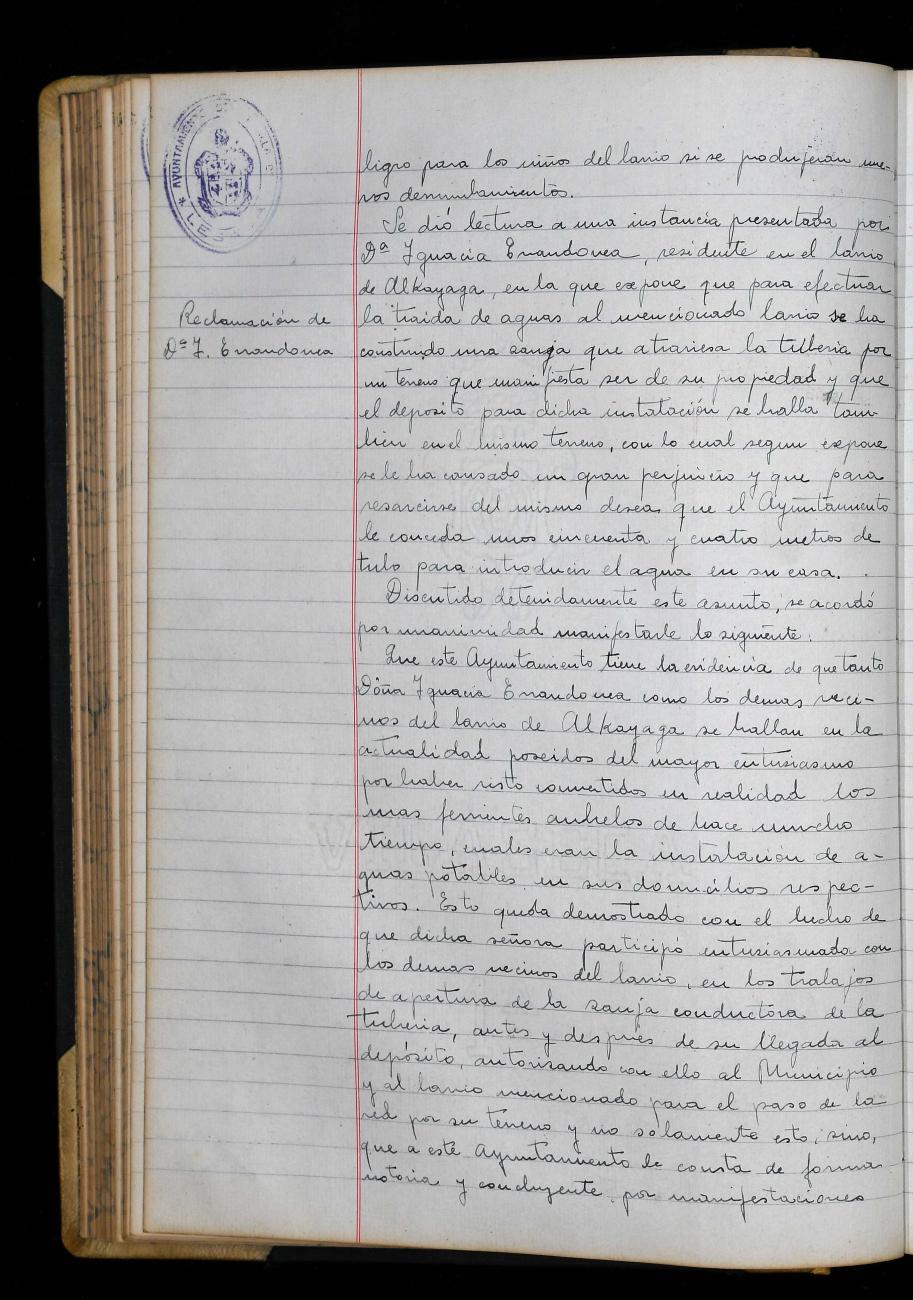 AYUNTAMIENTO DE LA VILLA DE
* LESACA
Reclamación de
Dª I. Errandonea
ligro para los niños del barrio si se produjeran nue-
vos derrumbamientos.
Se dió lectura a una instancia presentada por
Dª Ignacia Errandonea, residente en el barrio
de Alkayaga, en la que expone que para efectuar
la traida de aguas al mencionado barrio se ha
construido una zanja que atraviesa la tuberia por
un terreno que manifiesta ser de su propiedad y que
el deposito para dicha instalación se halla tam-
bien en el mismo terreno, con lo cual segun expone
se le ha causado un gran perjuicio y que para
resarcirse del mismo desea que el Ayuntamiento
le conceda unos cincuenta y cuatro metros de
tubo para introducir el agua en su casa.
Discutido detenidamente este asunto, se acordó
por unanimidad manifestarle lo siguiente:
Que este Ayuntamiento tiene la evidencia de que tanto
Doña Ignacia Errandonea como los demas veci-
nos del barrio de Alkayaga se hallan en la
actualidad poseidos del mayor entusiasmo
por haber visto convertidos en realidad los
mas fervientes anhelos de hace mucho
tiempo, cuales eran la instalación de a-
guas potables en sus domicilios respec-
tivos. Esto queda demostrado con el hecho de
que dicha señora participó entusiasmada con
los demas vecinos del barrio, en los trabajos
de apertura de la zanja conductora de la
tuberia, antes y despues de su llegada al
depósito, autorizando con ello al Municipio
y al barrio mencionado para el paso de la
red por su terreno y no solamente esto, sino,
que a este Ayuntamiento le consta de forma
notoria y concluyente, por manifestaciones